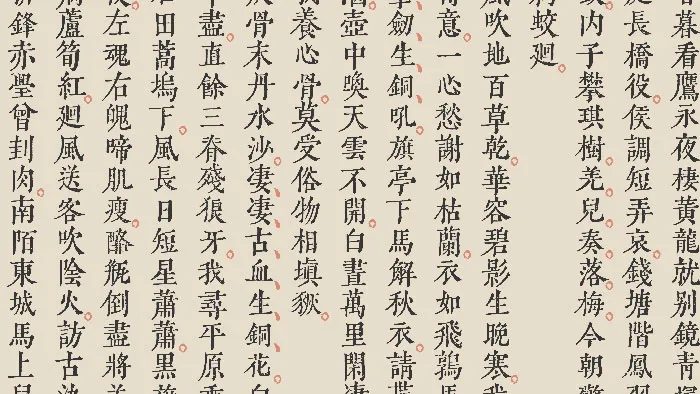 暮看鷹永夜棲黃龍就别鏡青
長橋役侯調短弄哀錢塘階鳳
内子攀琪樹羌兒奏落梅今朝
蛟廻
風吹地百草乾華容碧影生晚寒我
意一心愁謝如枯蘭衣如飛鶉馬
劒生銅吼旗亭下馬解秋衣請貰
酒壺中喚天雲不開白晝萬里閑凄
養心骨莫受俗物相填豗
骨末丹水沙凄凄古血生銅花白
盡直餘三脊殘狼牙我尋平原乘
田蒿塢下風長日短星蕭蕭黑旗
左魂右魄啼肌瘦酪瓶倒盡將羊
蘆筍紅廻風送客吹陰火訪古
鋒赤璺曾刲肉南陌東城馬上兒